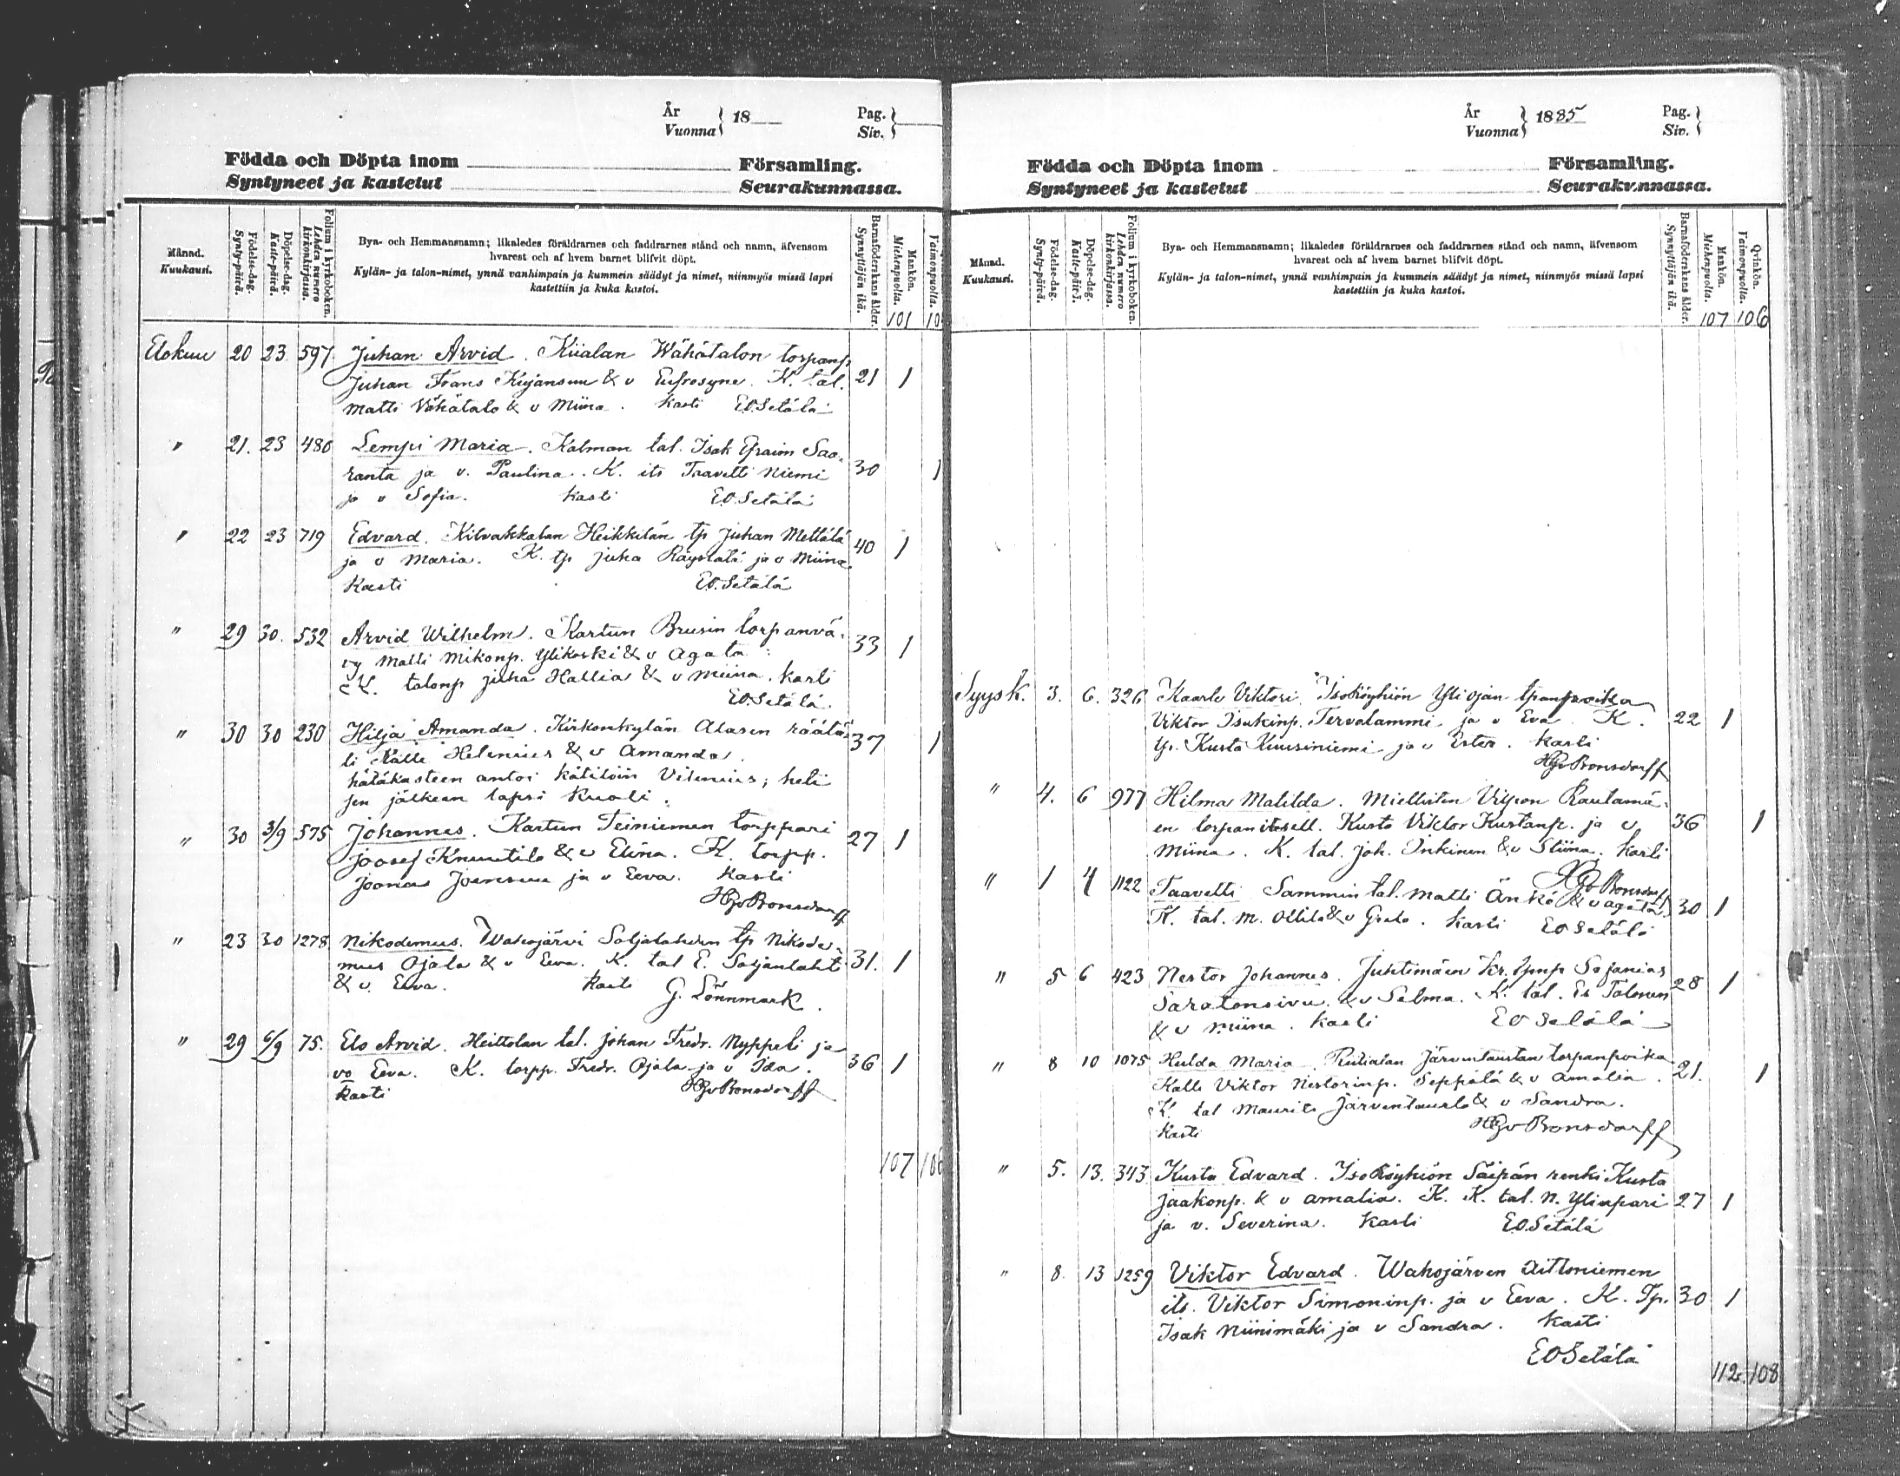 År
Vuonna
18
Pag.
Siv.
Födda och Döpta inom Församling.
Syntyneet ja kastetut Seurakunnassa.
Månad.
Kuukausi.
Födelse-dag.
Synty-päivä.
Döpelse-dag.
Kaste-päivä.
Folium i kyrkoboken.
Lehden numero kirkonkirjassa.
Bya- och Hemmansnamn; likaledes föräldrarnes och faddrarnes stånd och namn, äfvensom
hvarest och af hvem barnet blifvit döpt.
Kylän- ja talon-nimet, ynnä vanhimpain ja kummein säädyt ja nimet, niinmyös missä lapsi
kastettiin ja kuka kastoi.
Barnaföderskans ålder.
Synnyttäjän ikä.
Mankön.
Miehenpuolta.
Vaimonpuolta.
101 10
Elokuu 20 23 597 Juhan Arvid. Kiialan Wähätalon torpanp
Juhan Frans Kujansuu & v Eufrosyne. K. tal. 21 1
Matti Vähätalo & v Miina. Kasti EOSetälä
" 21. 23 480 Lempi Maria. Kalman tal. Isak Efraim Saa-
ranta ja v. Paulina. K. its Taavetti Niemi 30 1
ja v Sofia. Kasti EO.Setälä
" 22 23 719 Edvard. Kilvakkalan Heikkilän tp Juhan Mettälä 40 1
ja v Maria. K. tp Juha Räystälä ja v Miina
Kasti EO.Setälä
" 29 30. 532 Arvid Wilhelm. Kartun Brusin torpanvä- 33 1
vy Matti Mikonp. Ylikoski & v Agata
K. talonp Juha Hallia & v Miina. Kasti
EO.Setälä.
" 30 30 230 Hilja Amanda. Kirkonkylän Alasen räätä- 37 1
li Kalle Helenius & v Amanda.
hätäkasteen antoi kätilöin Vilenius; heti
sen jälkeen lapsi kuoli.
" 30 3/9 575 Johannes. Kartun Teiniemen torppari 27 1
Joosef Knuutila & v Elina. K. torpp.
Joonas Joensuu ja v Eeva. Kasti
HGvBonsdorff
" 23 30 1278 Nikodemus. Wahojärvi Soljalahden tp Nikode-
mus Ojala & v Eeva. K. tal E. Soljanlahti 31. 1
& v. Eeva. Kasti G. Lönnmark.
" 29 6/9 75. Elo Arvid. Heittolan tal. Johan Fredr. Nyppeli ja 36 1
vo Eeva. K. torpp. Fredr. Ojala ja v Ida.
Kasti HGvBonsdorff
107 106
År
Vuonna
1885
Pag.
Siv.
Födda och Döpta inom Församling.
Syntyneet ja kastetut Seurakunnassa.
Månad.
Kuukausi.
Födelse-dag.
Synty-päivä.
Döpelse-dag.
Kaste-päivä.
Folium i kyrkoboken.
Lehden numero kirkonkirjassa.
Bya- och Hemmansnamn; likaledes föräldrarnes och faddrarnes stånd och namn, äfvensom
hvarest och af hvem barnet blifvit döpt.
Kylän- ja talon-nimet, ynnä vanhimpain ja kummein säädyt ja nimet, niinmyös missä lapsi
kastettiin ja kuka kastoi.
Barnaföderskans ålder.
Synnyttäjän ikä.
Mankön.
Miehenpuolta.
Qvinkön.
Vaimonpuolta.
107 106
Syysk. 3. 6. 326 Kaarlo Viktori IsoRöyhiön Yliojan tpanpoika
Viktor Isakinp. Tervalammi ja v Eva K. 22 1
tp. Kusta Kuusiniemi ja v Ester. Kasti
HGvBonsdorff
" 4. 6 977 Hilma Matilda. Miettisten Vilpon Rautamä-
en torpanitsell. Kusta Viktor Kustanp. ja v 36 1
Miina. K. tal. Joh. Inkinen & v Stiina. Kasti
HGvBonsdorff
" 1 4 1122 Taavetti Sammin tal. Matti Änkö & v Agata 30 1
K. tal. M. Ollila & v Greta. Kasti EO Setälä
" 5 6 423 Nestor Johannes. Juhtimäen Kr. tpnp Sofanias
Saratonsivu & v Selma. K. tal. Es Talonen 28 1
& v Miina. Kasti EO Setälä
" 8 10 1075 Hulda Maria. Riitialan Järventaustan torpanpoika
Kalle Viktor Nestorinp. Seppälä & v Amalia. 21. 1
K. tal Maurits Järventausta & v Sandra.
Kasti HGvBonsdorff
" 5. 13. 343 Kusta Edvard. IsoRöyhiön Säipän renki Kusta
Jaakonp. & v Amalia. K. K. tal. N. Ylinpari 27 1
ja v. Severina. Kasti EO.Setälä
" 8. 13 1259 Viktor Edvard. Wahojärven Aittoniemen
its. Viktor Simoninp. ja v Eeva. K. Tp. 30 1
Isak Niinimäki ja v Sandra. Kasti
EOSetälä
112. 108